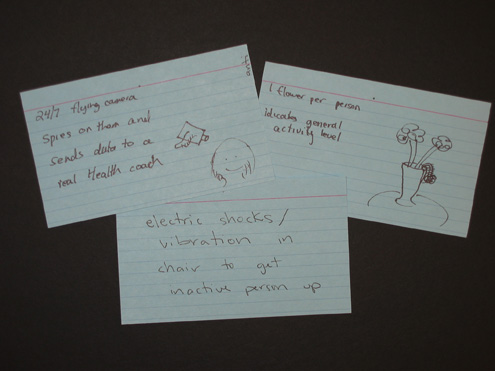 24/7 flying camera
spies on them and
sends data to a
real Health coach
1 flower per person
Idicates general
activity level
electric shocks/
vibration in
chair to get
inactive person up